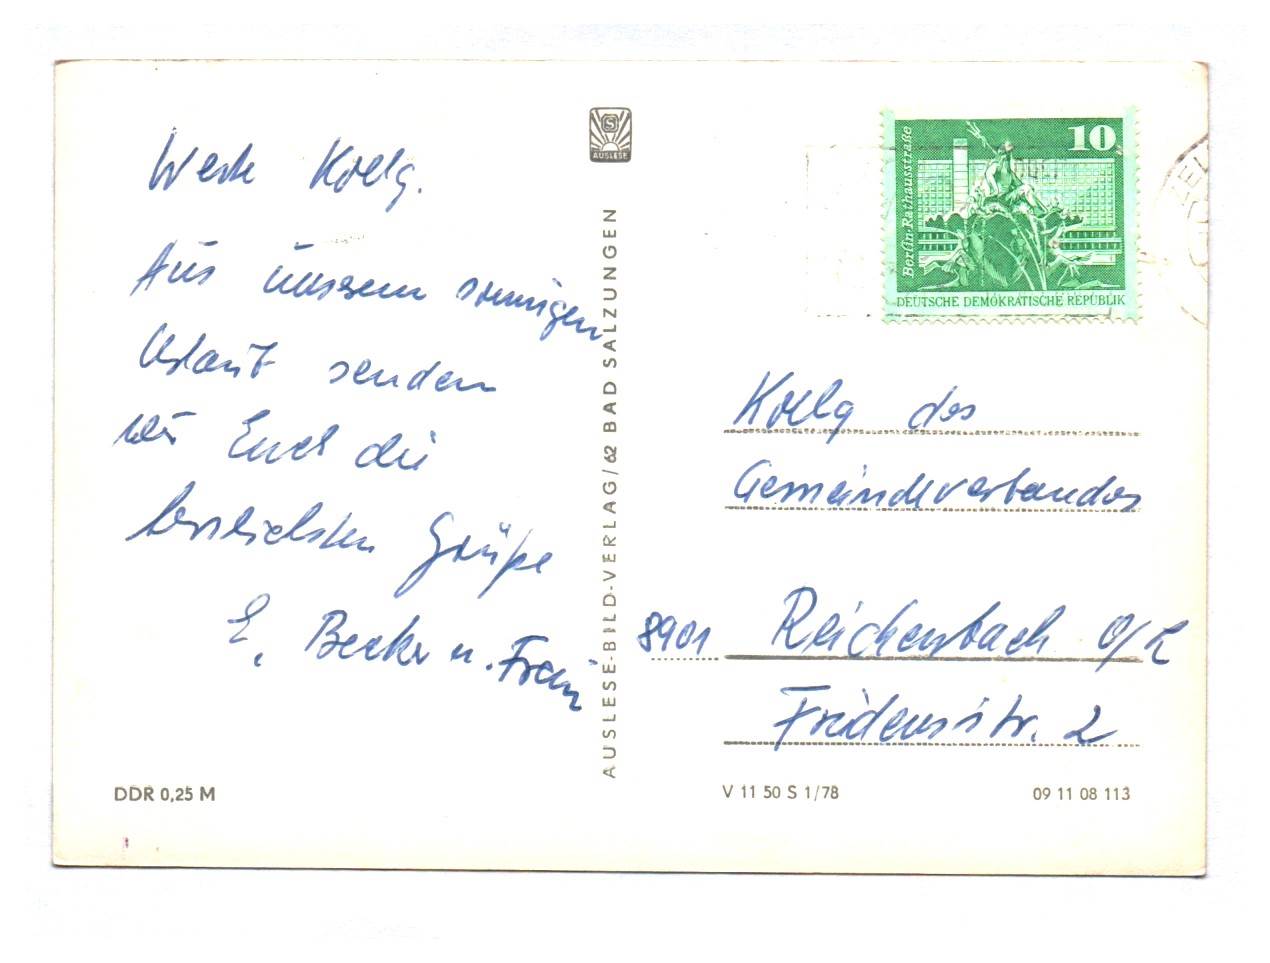 Werte Kollg.
Aus unserem sonnigen
Urlaub senden
wir Euch die
herzlichsten Grüße
E. Becker u. Frau
DDR 0,25 M
S
AUSLESE
AUSLESE-BILD-VERLAG/62 BAD SALZUNGEN
10
Berlin·Rathausstraße
DEUTSCHE DEMOKRATISCHE REPUBLIK
Kollg des
Gemeindeverbandes
8901 Reichenbach O/L
Friedensstr. 2
V 11 50 S 1/78
09 11 08 113